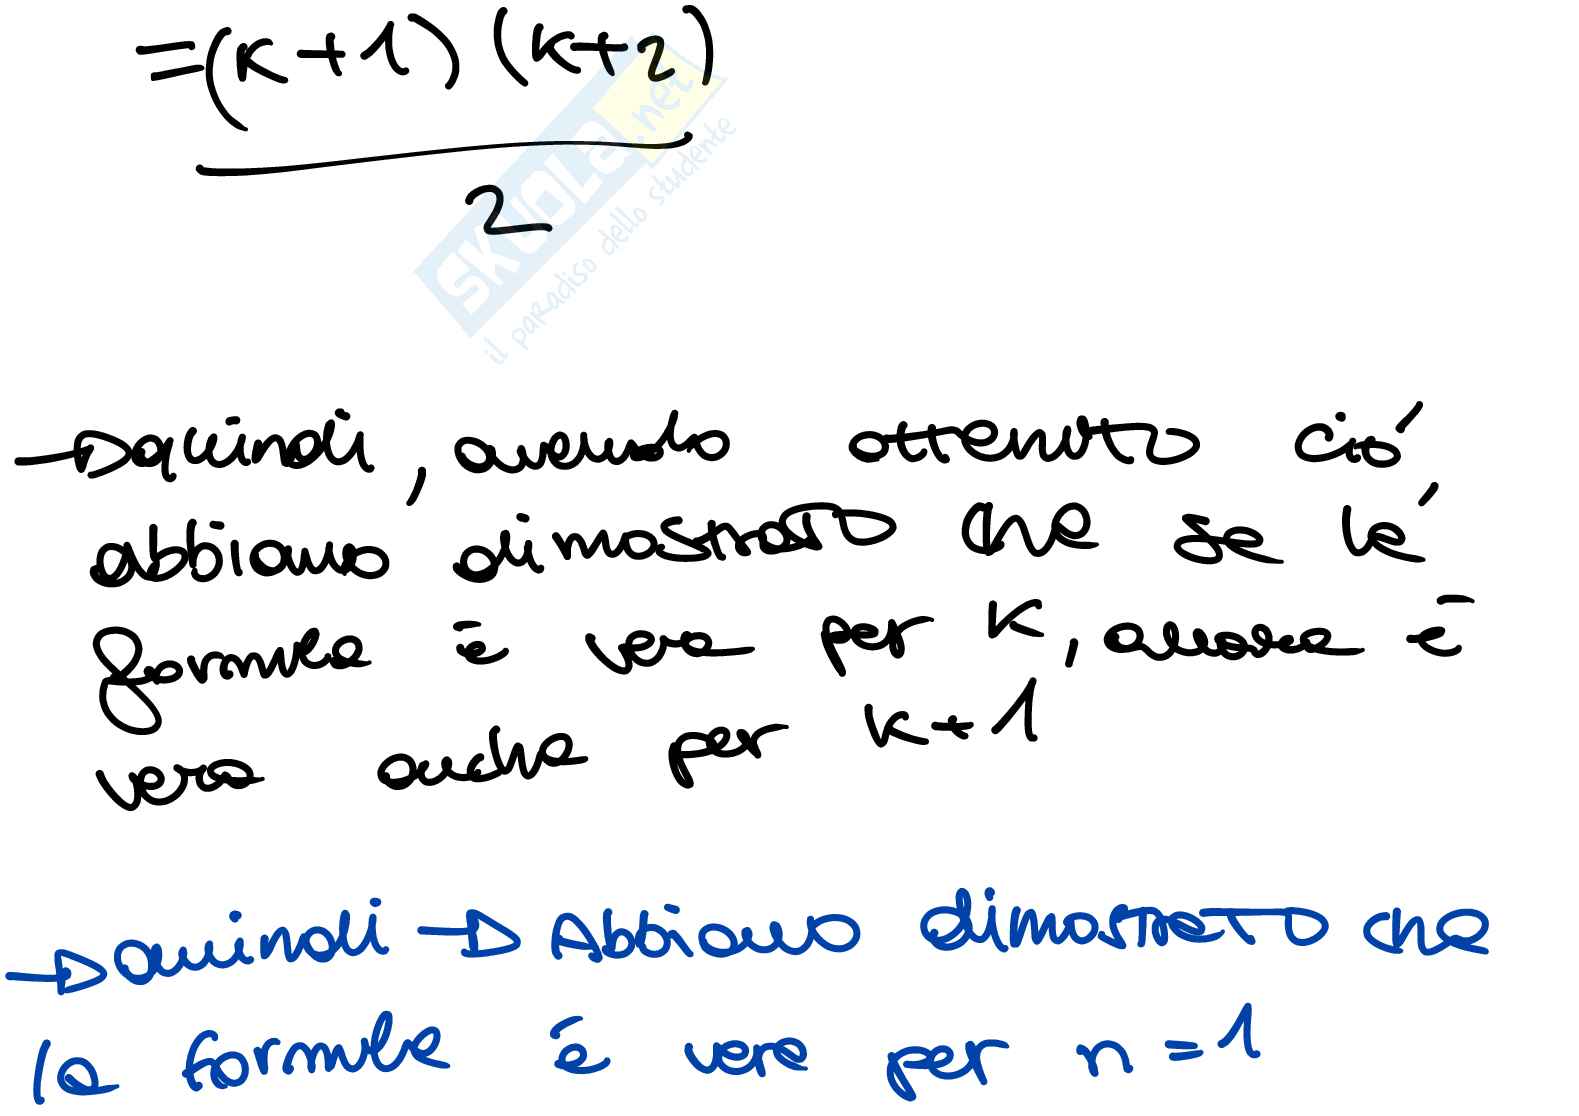 =(k+1)(k+2)
2
SKUOLA.net
il paradiso dello studente
→ quindi, avendo ottenuto ció
abbiamo dimostrato che se la
formula è vera per k, allora è
vera anche per k+1
→ quindi → Abbiamo dimostrato che
la formula è vera per n=1